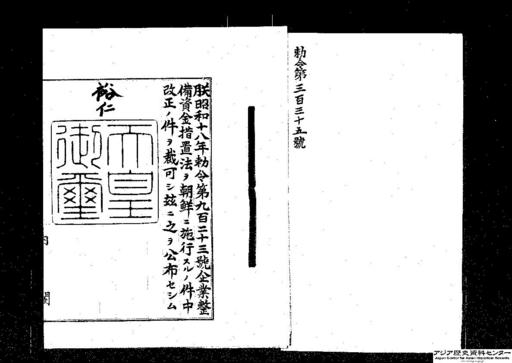 勅令第三百三十五號
朕昭和十八年勅令第九百二十三號企業整
備資金措置法ヲ朝鮮ニ施行スルノ件中
改正ノ件ヲ裁可シ茲ニ之ヲ公布セシム
裕仁
天皇
御璽
内閣
アジア歴史資料センター
Japan Center for Asian Historical Records